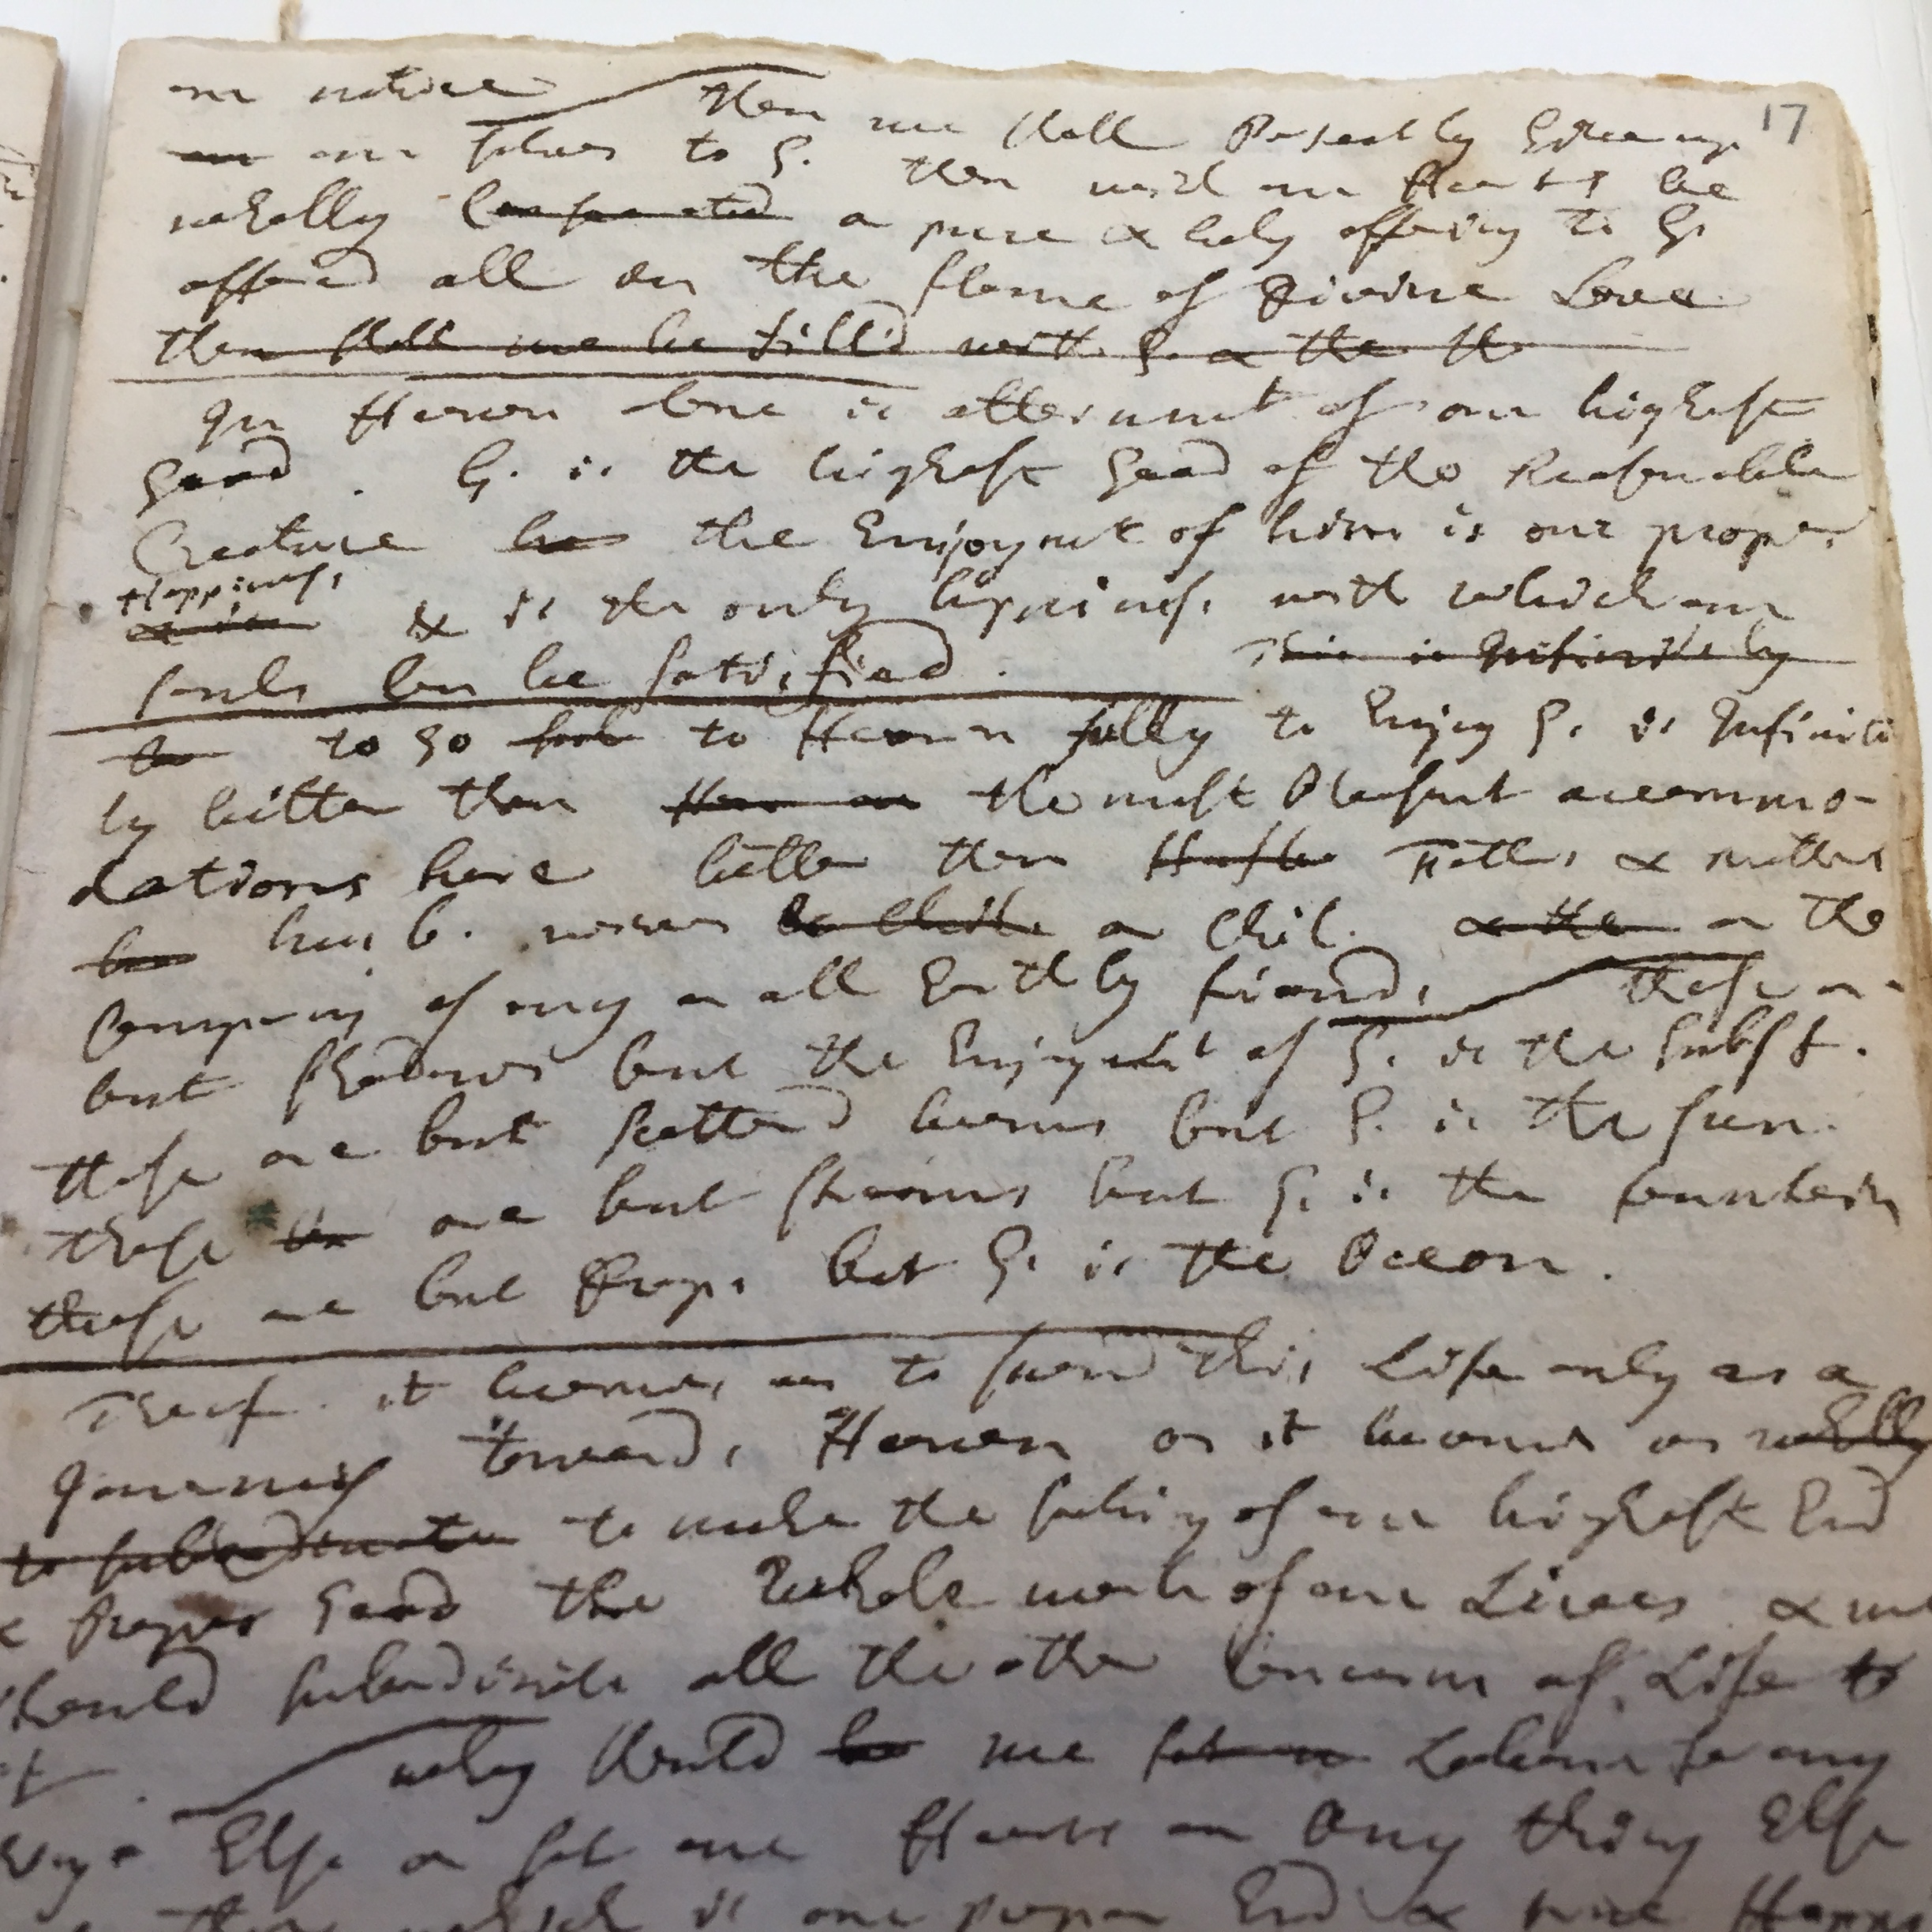 17
our nature then we shall Perfectly Give up
our selves to G. then will our Hearts be
wholly Consecrated a pure & holy offering to G.
offered all in the flame of Divine Love
then shall we be filld with G. & the th
In Heaven alone is attainmt of our highest
Good. G. is the highest Good of the Reasonable
Creature he the Enjoymt of him is our proper
Happiness,
& is the only happiness, with which our
souls Can be satisfied. This is Infinitely
to Go to Heaven fully to Enjoy G. is Infinite
ly better than the most Pleasant accommo-
dations here better than Fathers & mothers
husb. wives or Chil. or the
Company of any or all Earthly friends, these are
but shadows but the Enjoymt of G. is the subst.
these are but scatterd beams but G. is the sun.
these are but streams but G. is the fountain
these are but Drops, but G. is the Ocean.
Theref. it becomes us to spend this Life only as a
Journey towards Heaven as it becomes us wholly
to subordinate to make the seeking of our highest End
& Proper Good the whole work of our Lives & we
should subordinate all the other Concerns of Life to
it. why should we Labour for any
thing Else or set our Hearts on Any thing Else
which is our proper End & true Happi